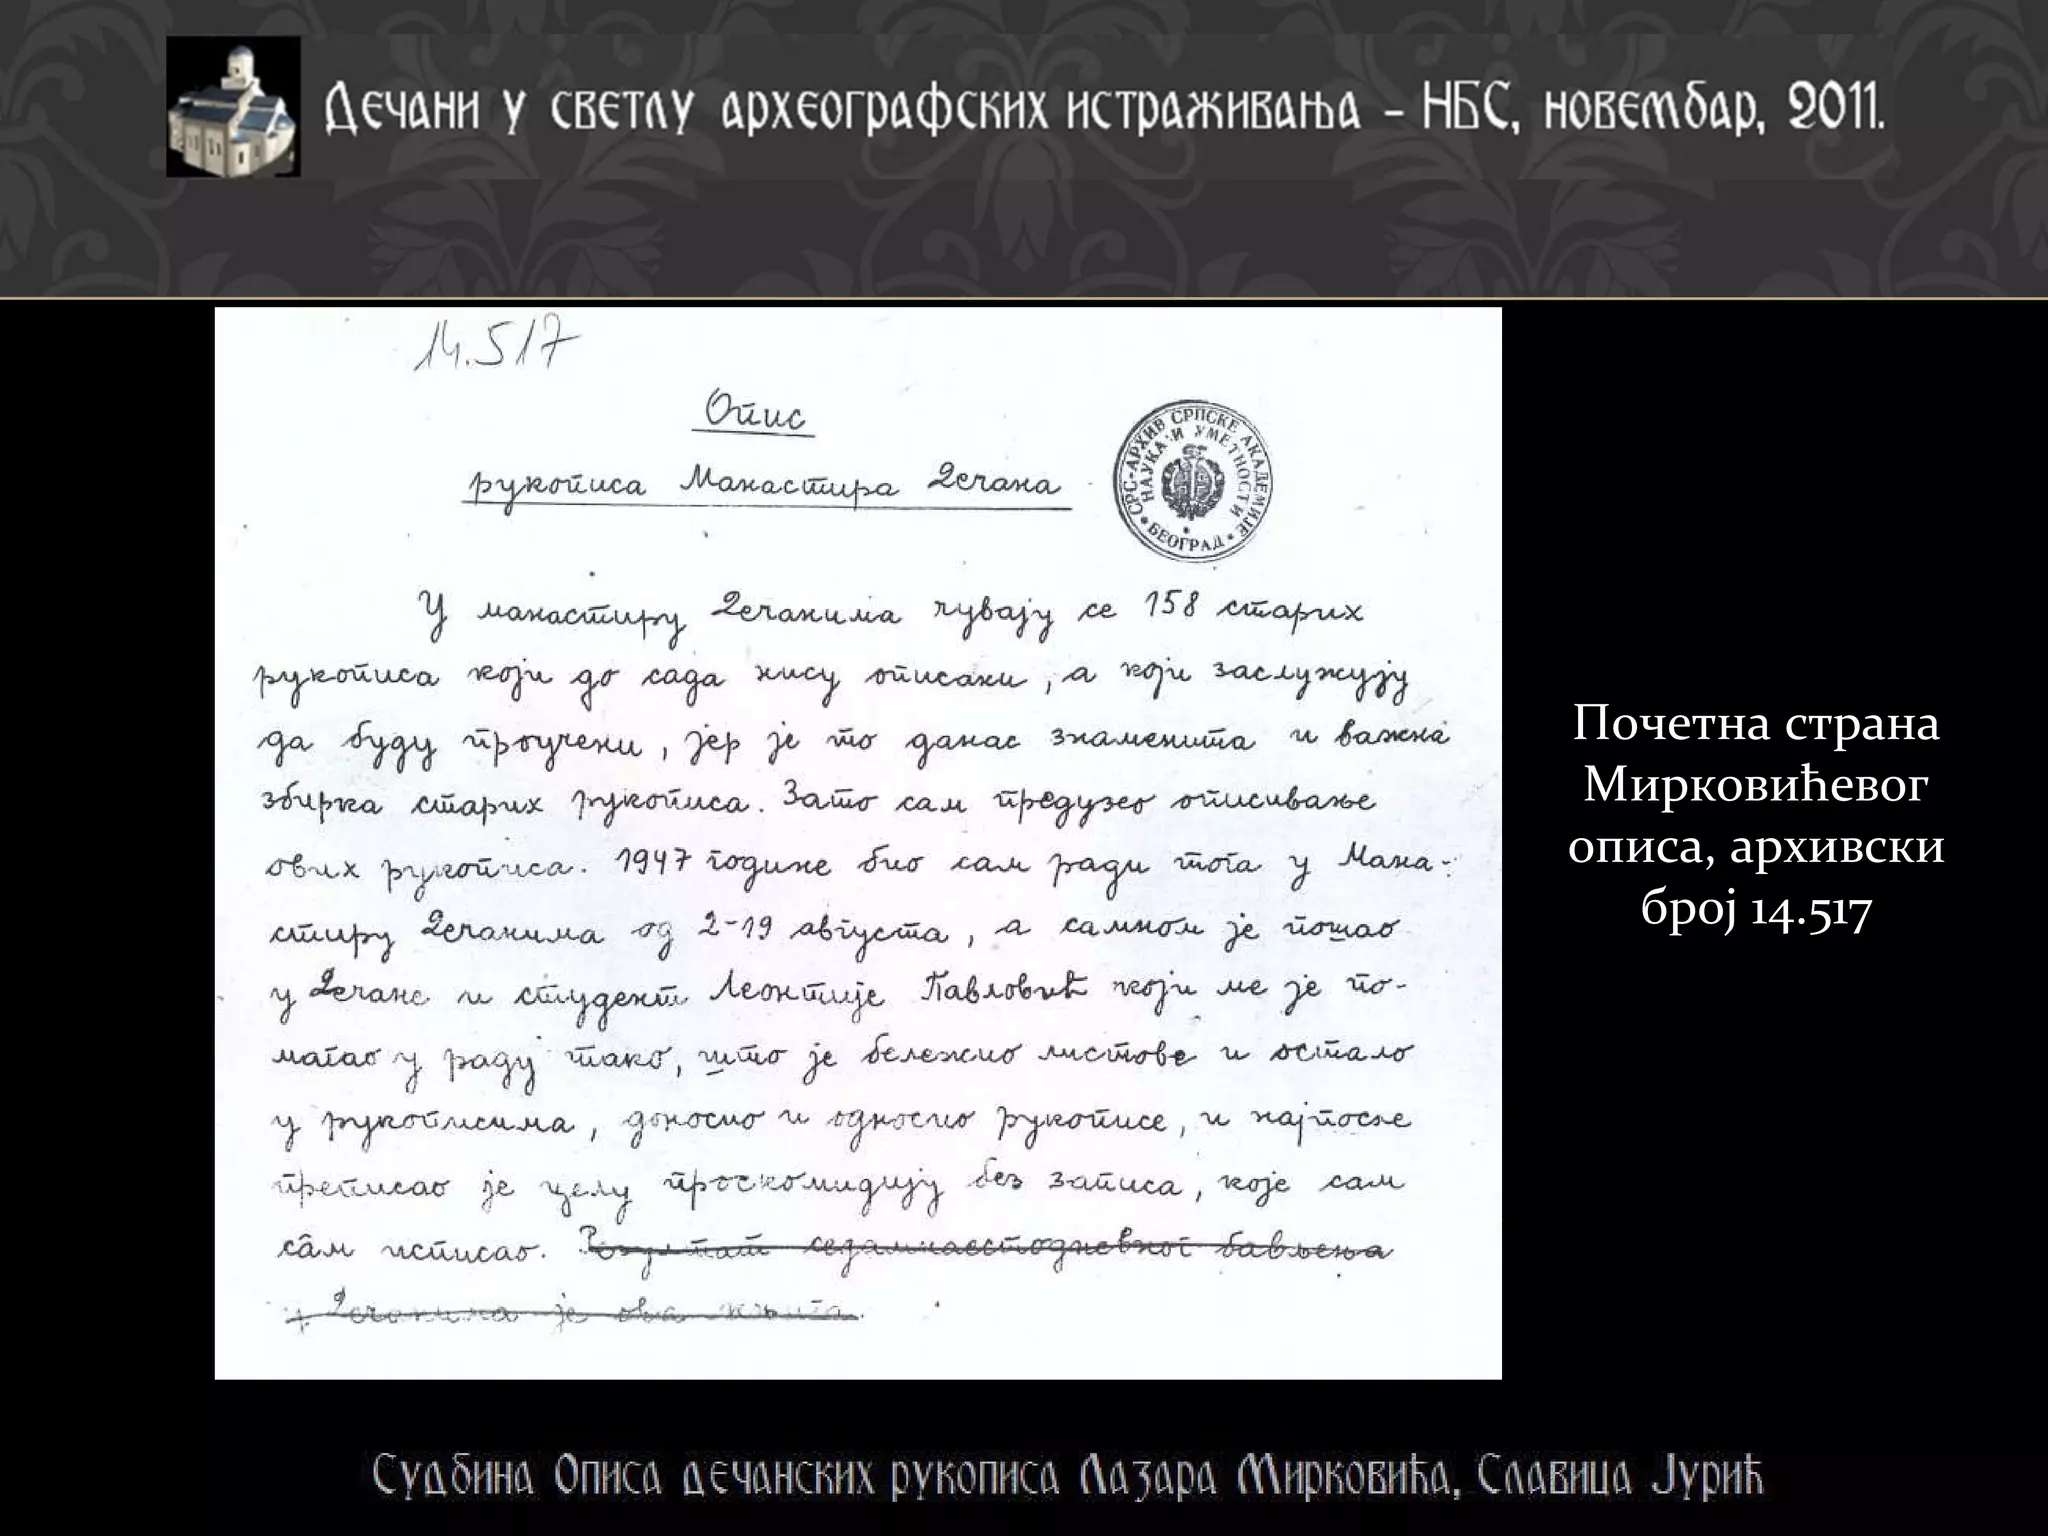 Дечани у светлу археографских истраживања - НБС, новембар, 2011.
14.517
Опис
рукописа Манастира Дечана
СРС-АРХИВ СРПСКЕ АКАДЕМИЈЕ
НАУКА И УМЕТНОСТИ
БЕОГРАД
У манастиру Дечанима чувају се 158 старих
рукописа који до сада нису описани, а који заслужују
да буду проучени, јер је то данас знаменита и важна
збирка старих рукописа. Зато сам предузео описивање
ових рукописа. 1947 године био сам ради тога у Мана-
стиру Дечанима од 2-19 августа, а самном је пошао
у Дечане и студент Леонтије Павловић који ме је по-
магао у раду тако, што је бележио листове и остало
у рукописима, доносио и односио рукописе, и најпосле
преписао је целу проскомидију без записа, које сам
сâм исписао. Резултат седамнаестодневног бављења
у Дечанима је ова књига.
Почетна страна
Мирковићевог
описа, архивски
број 14.517
Судбина Описа дечанских рукописа Лазара Мирковића, Славица Јурић